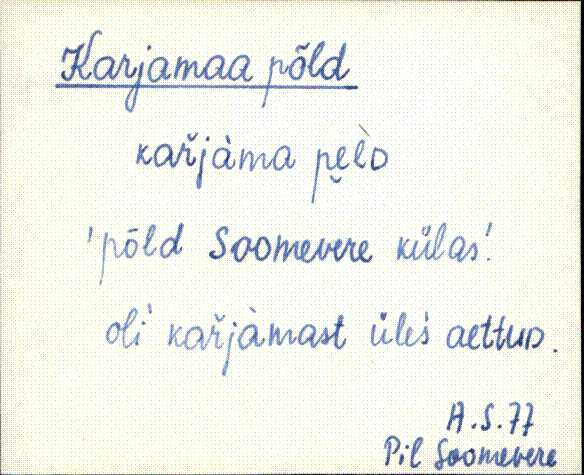 Karjamaa põld
kařjàma pe̮l̀D
'põld Soomevere külas'.
oli kařjàmast üleś aettuD.
A.S.77
Pil Soomevere